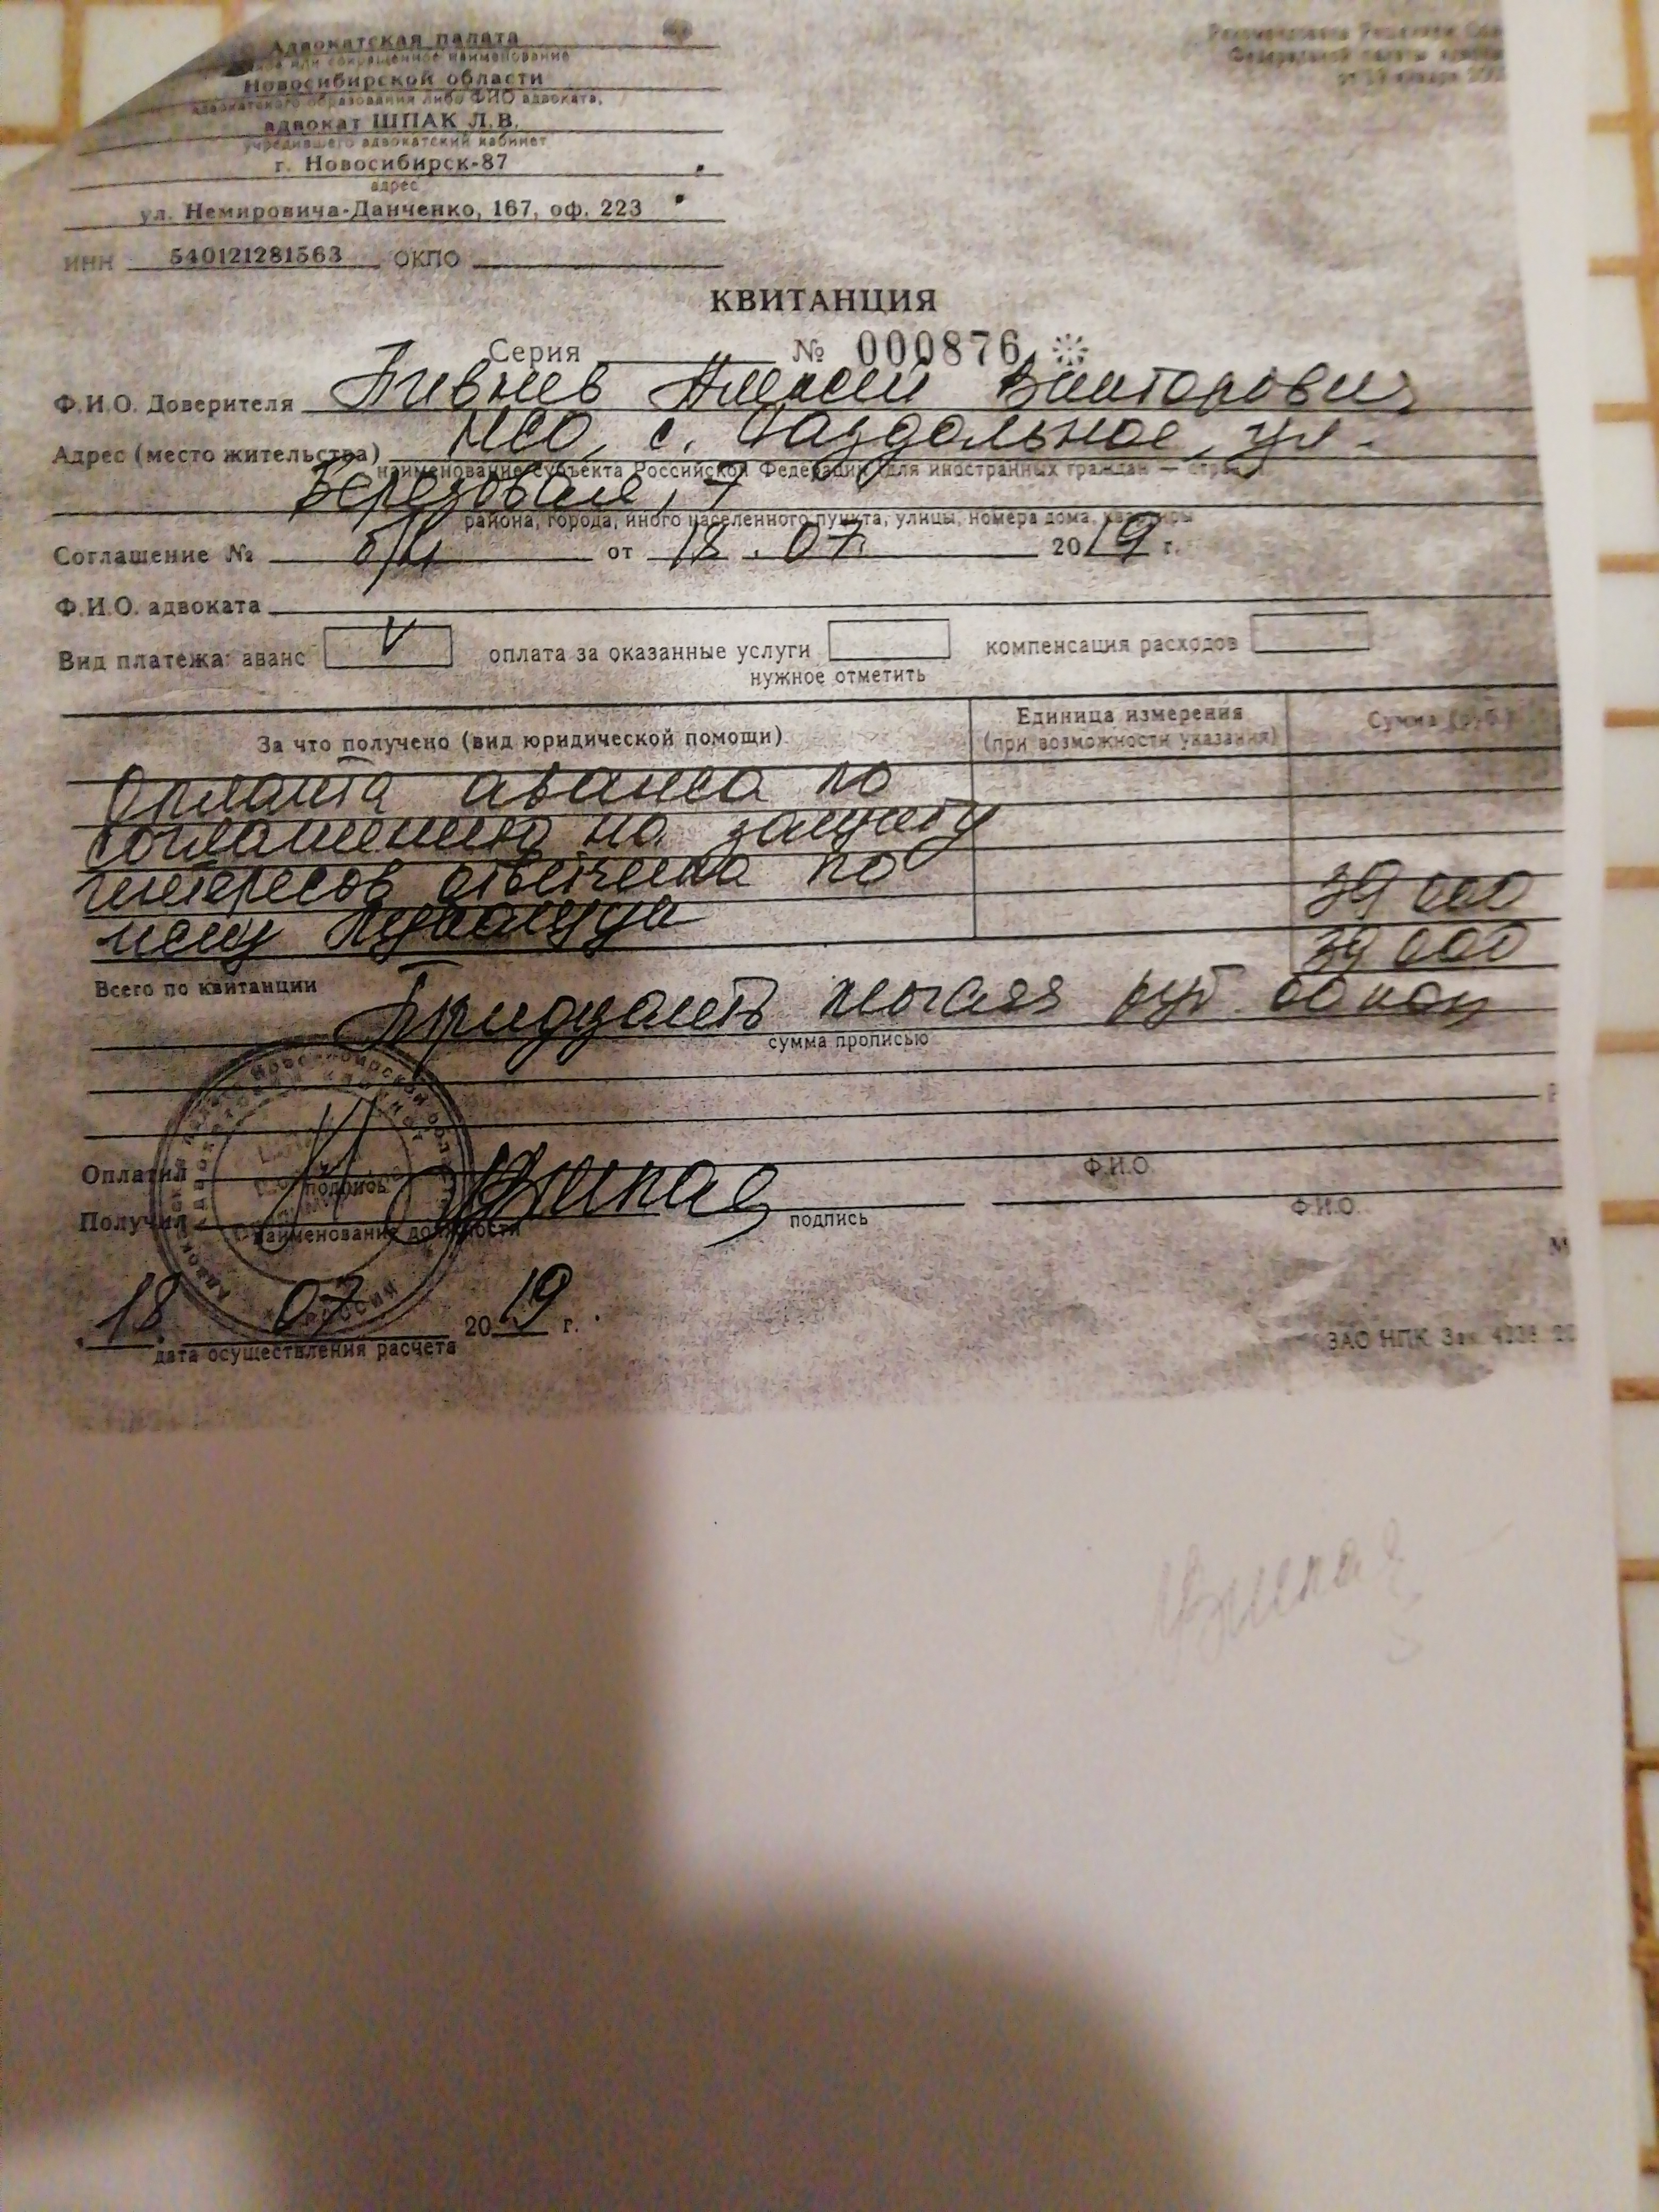 Адвокатская палата
или сокращенное наименование
Новосибирской области
адвокатского образования либо ФИО адвоката,
адвокат ШПАК Л.В.
учредившего адвокатский кабинет
г. Новосибирск-87
адрес
ул. Немировича-Данченко, 167, оф. 223
ИНН 540121281563 ОКПО
Рекомендована Решением
Федеральной палаты
от 19 января
КВИТАНЦИЯ
Серия № 000876
Ф.И.О. Доверителя Пивнев Алексей Викторович
Адрес (место жительства) НСО, с. Раздольное, ул.
наименование субъекта Российской Федерации (для иностранных граждан —
Березовая, 7
района, города, иного населенного пункта, улицы, номера дома, квартиры
Соглашение № б/н от 18.07. 2019 г.
Ф.И.О. адвоката
Вид платежа: аванс V оплата за оказанные услуги компенсация расходов
нужное отметить
За что получено (вид юридической помощи) Единица измерения (при возможности указания) Сумма (руб.)
Оплата аванса по
соглашению на защиту
интересов ответчика по
иску 39 000
Всего по квитанции 39 000
Тридцать тысяч руб. 00 коп
сумма прописью
Оплатил подпись Ф.И.О.
Получил наименование должности подпись Ф.И.О.
18. 07 2019 г.
дата осуществления расчета
ЗАО НПК Зак.